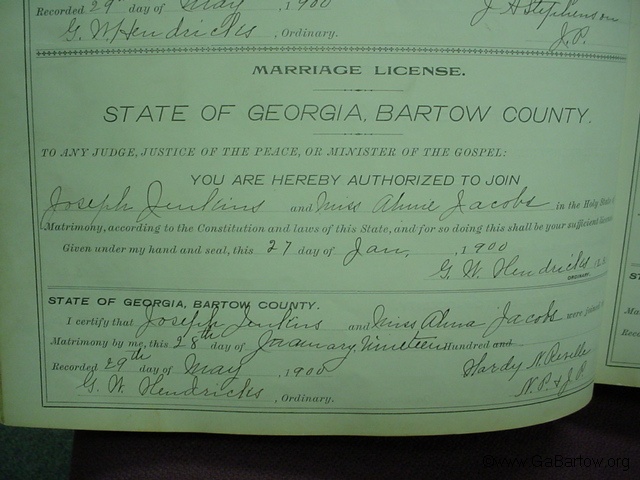 Recorded 29th day of May , 1900 J H Stephenson
G. W. Hendricks , Ordinary. J. P.
MARRIAGE LICENSE.
STATE OF GEORGIA, BARTOW COUNTY.
TO ANY JUDGE, JUSTICE OF THE PEACE, OR MINISTER OF THE GOSPEL:
YOU ARE HEREBY AUTHORIZED TO JOIN
Joseph Jenkins and Miss Jacobs in the Holy State of
Matrimony, according to the Constitution and laws of this State, and for so doing this shall be your sufficient license.
Given under my hand and seal, this 27 day of Jan. , 1900
G. W. Hendricks
ORDINARY.
STATE OF GEORGIA, BARTOW COUNTY.
I certify that Joseph Jenkins and Miss Jacobs were joined in
Matrimony by me, this 28th day of January, Nineteen Hundred and
Recorded 29th day of May , 1900 Hardy N.
G. W. Hendricks , Ordinary. N. P. & J. P.
©www.GaBartow.org